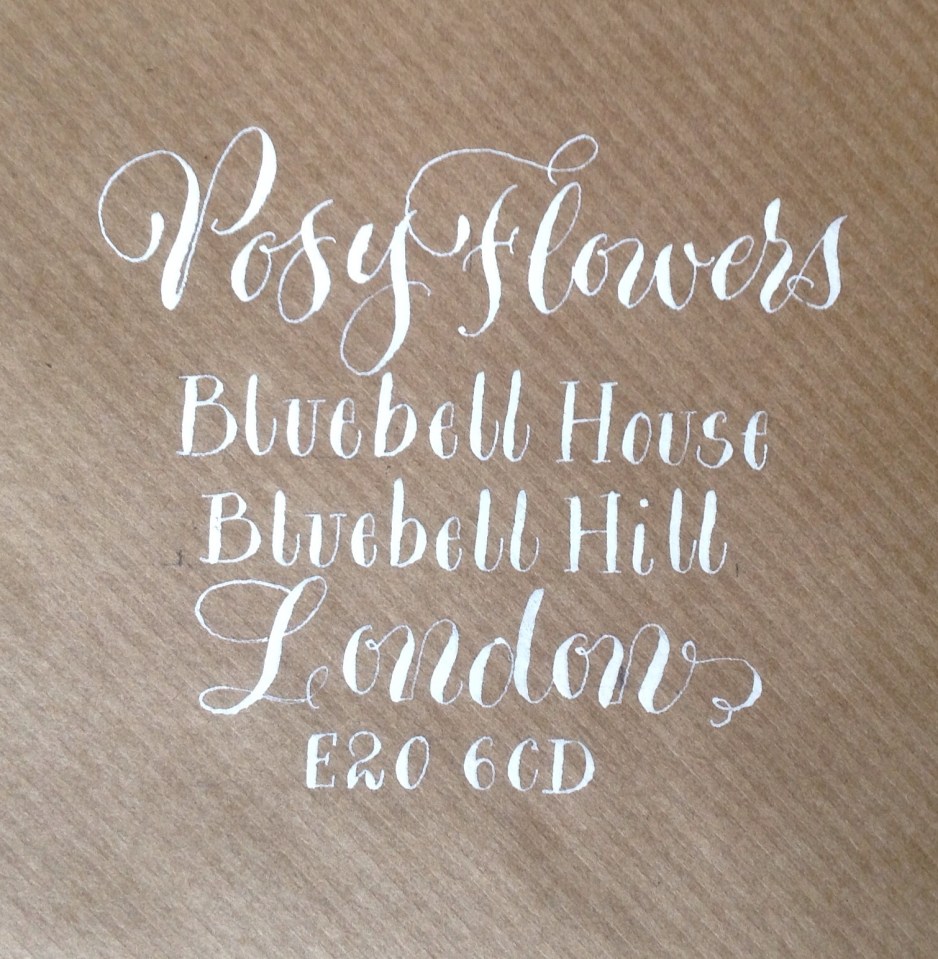 Posy Flowers
Bluebell House
Bluebell Hill
London
E20 6CD